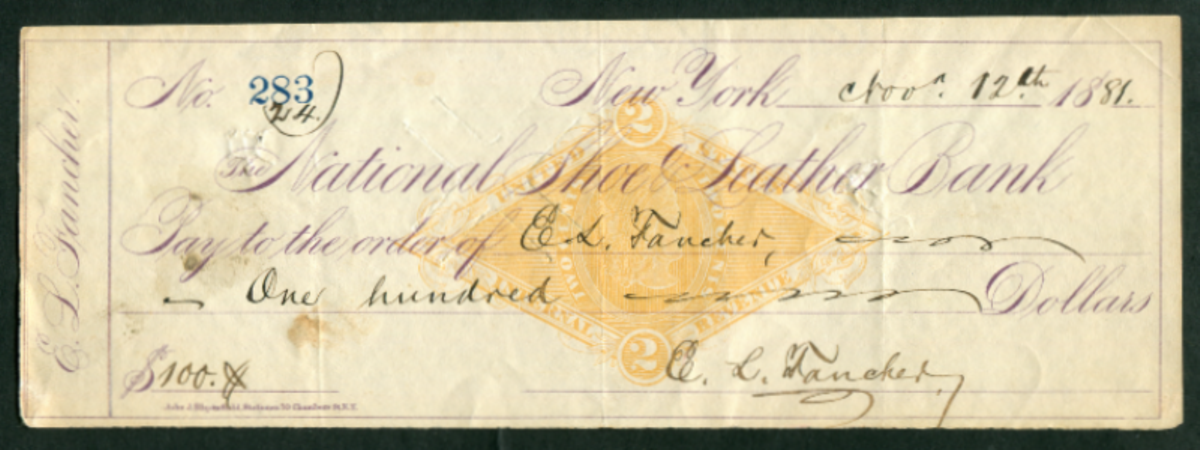 E. L. Fancher.
No. 283
24.
New York Nov.r 12.th 1881.
The National Shoe & Leather Bank
Pay to the order of E. L. Fancher,
One hundred Dollars
$100.
E. L. Fancher,
UNITED STATES
INTERNAL REVENUE
2
2
Chambers St. N.Y.